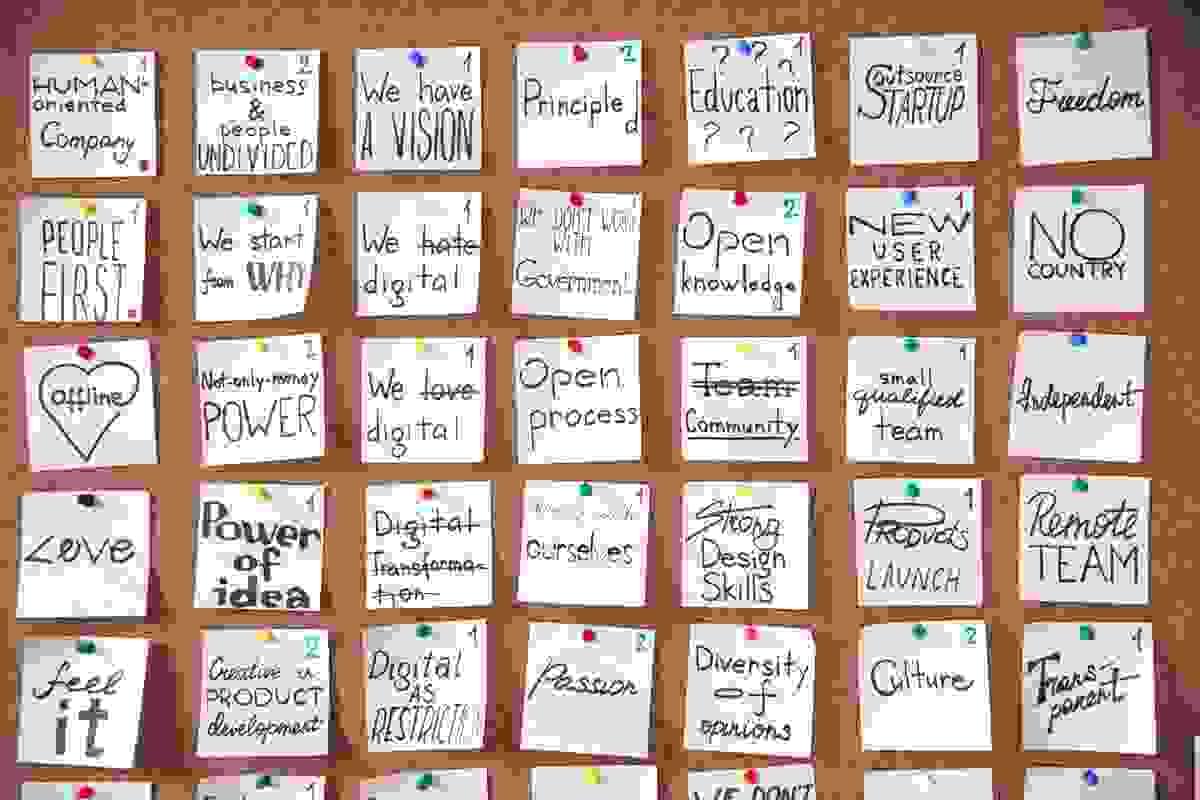 1
HUMAN-
oriented
Company
2
business
&
people
UNDIVIDED
1
We have
A VISION
2
Principle
d
1
? ? ?
Education
? ? ?
1
Outsource
STARTUP
Freedom
1
PEOPLE
FIRST
1
We start
from WHY
1
We hate
digital
1
We DON'T WORK
WITH
Government!
2
Open
knowledge
1
NEW
USER
EXPERIENCE
NO
COUNTRY
offline
2
Not-only-money
POWER
1
We love
digital
Open
process
1
Team
Community
1
small
qualified
team
Independent
Love
1
Power
of
idea
Digital
Transforma-
tion
1
ourselves
Strong
Design
Skills
1
Products
LAUNCH
Remote
TEAM
feel
it
2
Creative in
PRODUCT
development
1
Digital
AS
2
Passion
Diversity
of
opinions
2
Culture
1
Trans-
parent
1
WE DON'T